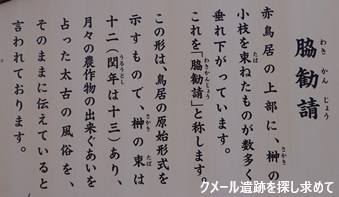 脇勧請
わきかんじょう
赤鳥居の上部に、榊の
さかき
小枝を束ねたものが数多く
たば
垂れ下がっています。
これを「脇勧請」と称します。
わきかんじょう
この形は、鳥居の原始形式を
示すもので、榊の束は
さかき たば
十二（閏年は十三）あり、
うるうどし
月々の農作物の出来ぐあいを
占った太古の風俗を、
そのままに伝えていると
言われております。
クメール遺跡を探し求めて